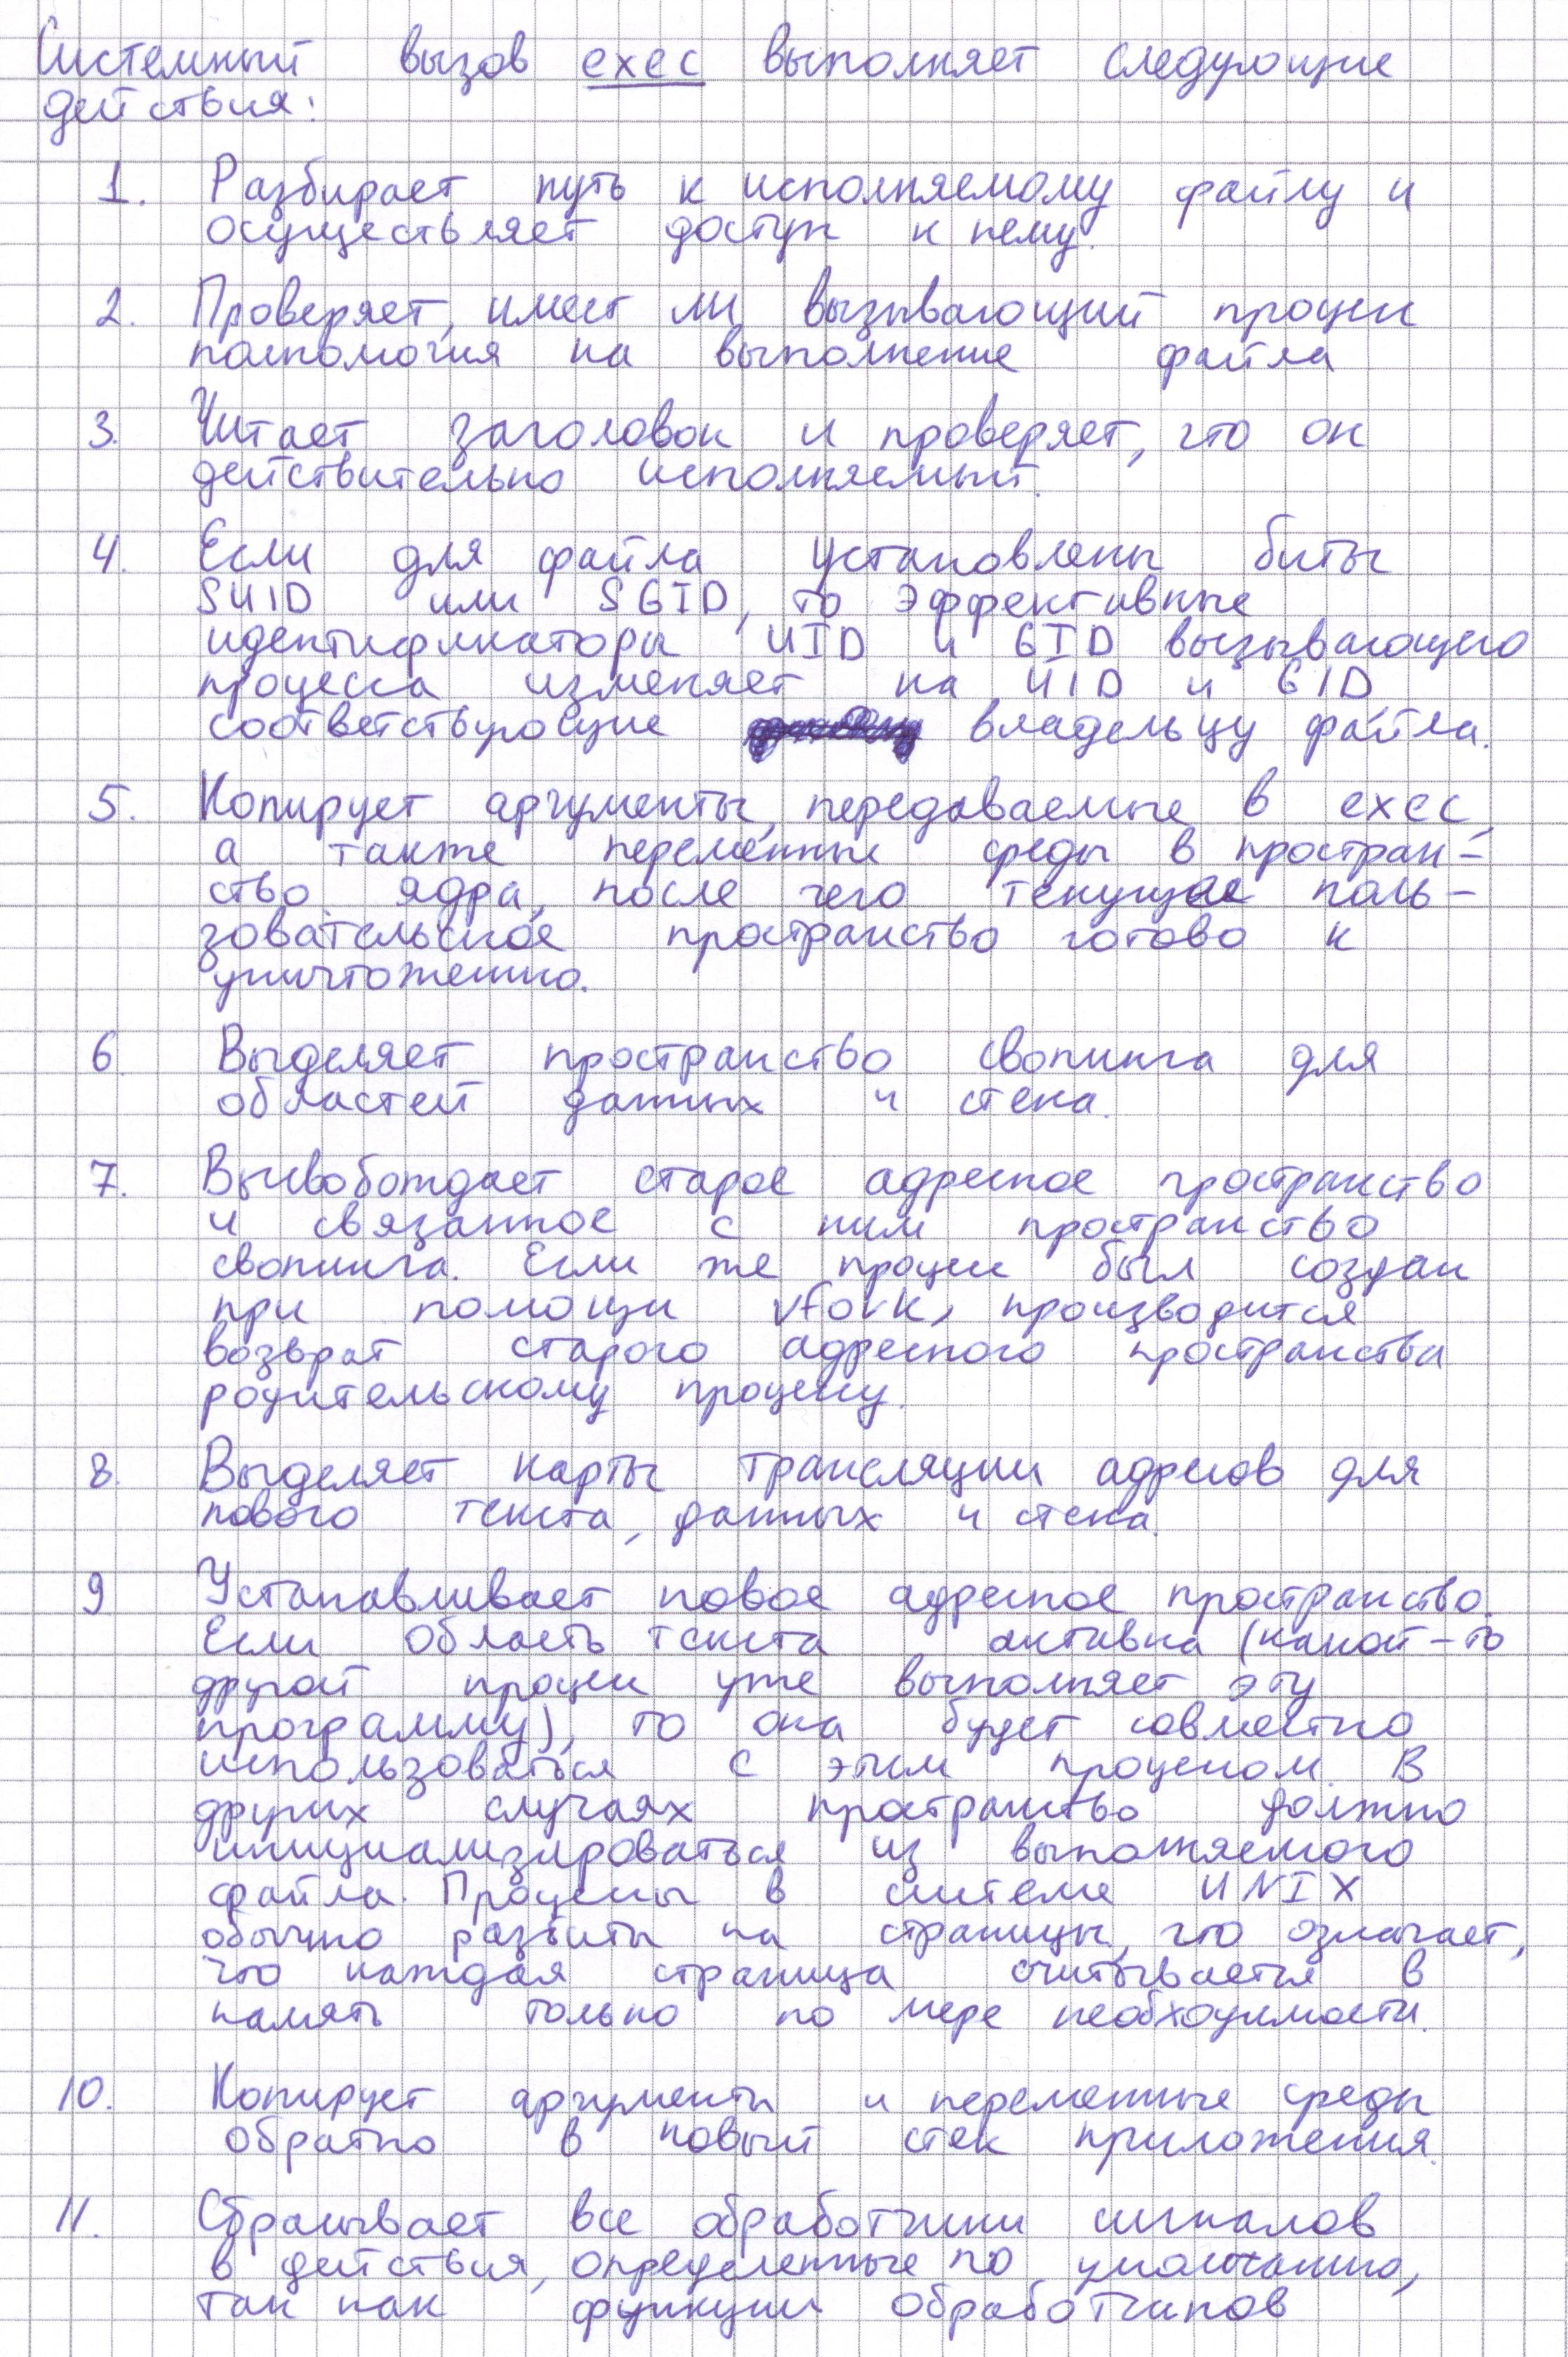 Системный вызов exec выполняет следующие
действия:
1. Разбирает путь к исполняемому файлу и
осуществляет доступ к нему.
2. Проверяет, имеет ли вызывающий процесс
полномочия на выполнение файла
3. Читает заголовок и проверяет, что он
действительно исполняемый.
4. Если для файла установлены биты
SUID или SGID, то эффективные
идентификаторы UID и GID вызывающего
процесса изменяет на UID и GID,
соответствующие владельцу файла.
5. Копирует аргументы, передаваемые в exec,
а также переменные среды в простран-
ство ядра, после чего текущее поль-
зовательское пространство готово к
уничтожению.
6. Выделяет пространство свопинга для
областей данных и стека.
7. Высвобождает старое адресное пространство
и связанное с ним пространство
свопинга. Если же процесс был создан
при помощи vfork, производится
возврат старого адресного пространства
родительскому процессу.
8. Выделяет карты трансляции адресов для
нового текста, данных и стека.
9 Устанавливает новое адресное пространство.
Если область текста активна (какой-то
другой процесс уже выполняет эту
программу), то она будет совместно
использоваться с этим процессом. В
других случаях пространство должно
инициализироваться из выполняемого
файла. Процессы в системе UNIX
обычно разбиты на страницы, что означает,
что каждая страница считывается в
память только по мере необходимости.
10. Копирует аргументы и переменные среды
обратно в новый стек приложения.
11. Сбрасывает все обработчики сигналов
в действия, определенные по умолчанию,
так как функции обработчиков